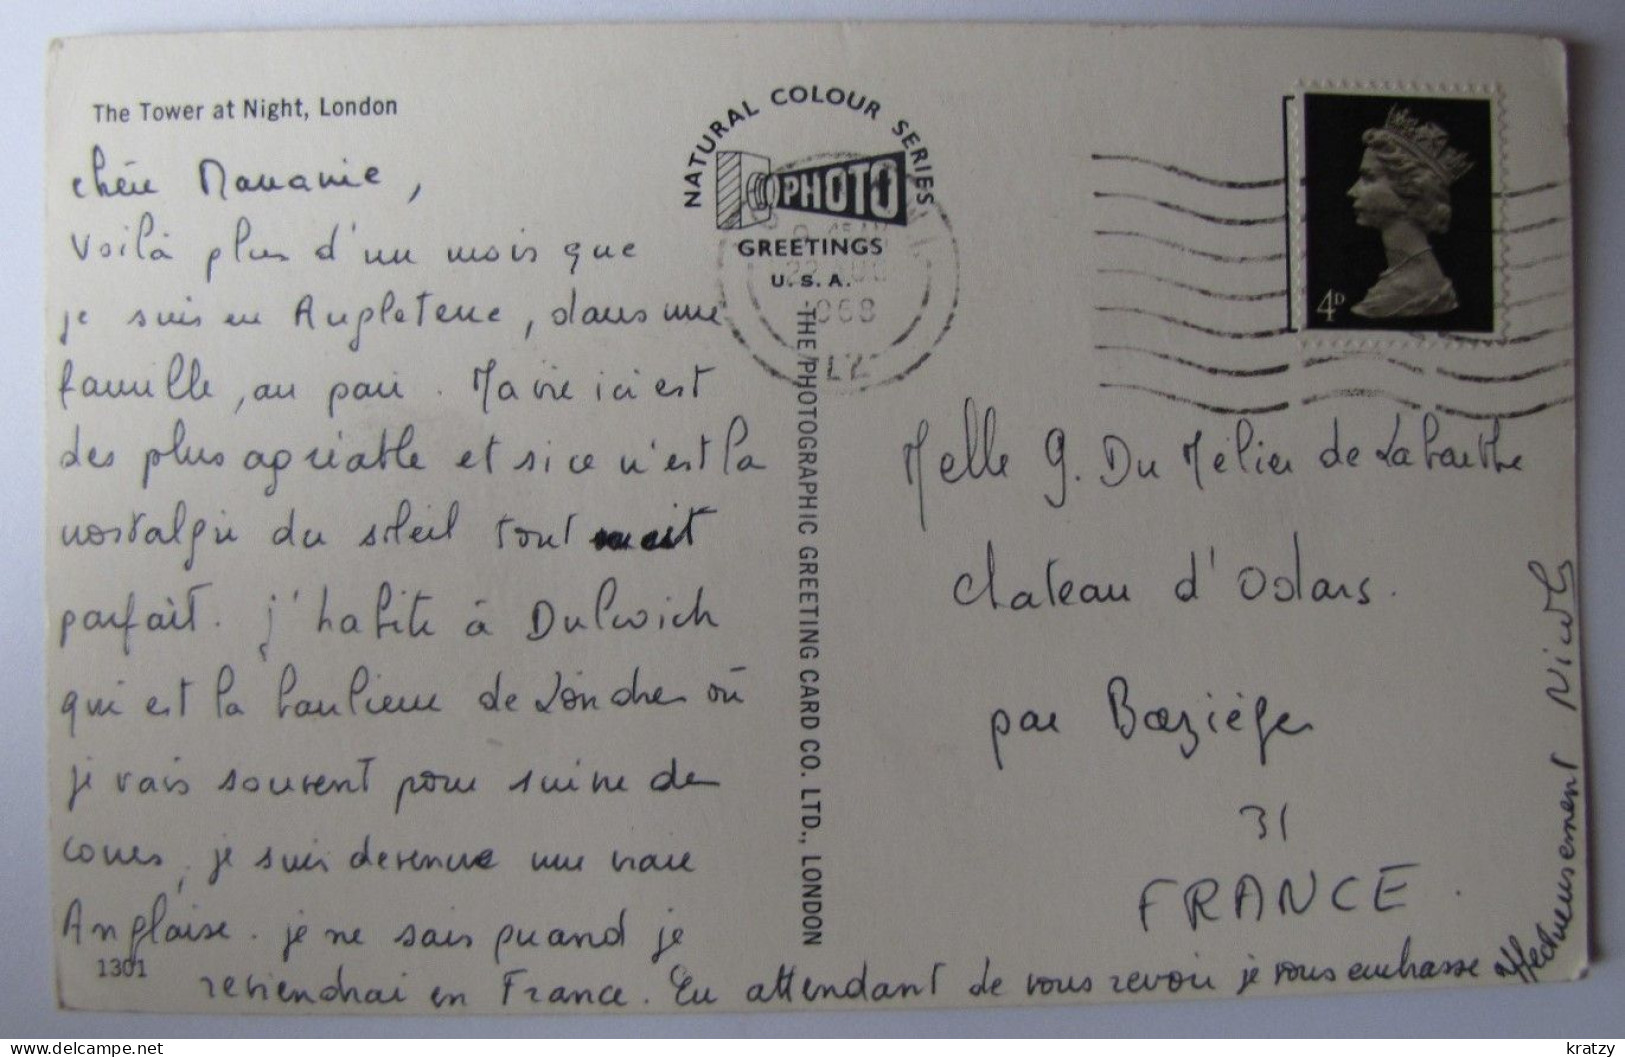 The Tower at Night, London
chérie Mananie,
Voilà plus d'un mois que
je suis en Angleterre, dans une
famille, au pair. Ma vie ici est
des plus agréable et si ce n'est la
nostalgie du soleil tout serait
parfait. j'habite à Dulwich
qui est la banlieue de Londres où
je vais souvent pour suivre des
cours, je suis devenue une vraie
Anglaise. je ne sais quand je
reviendrai en France. En attendant de vous revoir je vous embrasse
affectueusement Nicole
1301
NATURAL COLOUR SERIES
PHOTO
GREETINGS
U.S.A.
THE PHOTOGRAPHIC GREETING CARD CO. LTD., LONDON
22 AUG
1968
4D
Melle G. Du Mélier de Labarthe
Chateau d'Odars.
par Baziège
31
FRANCE.
kratzy